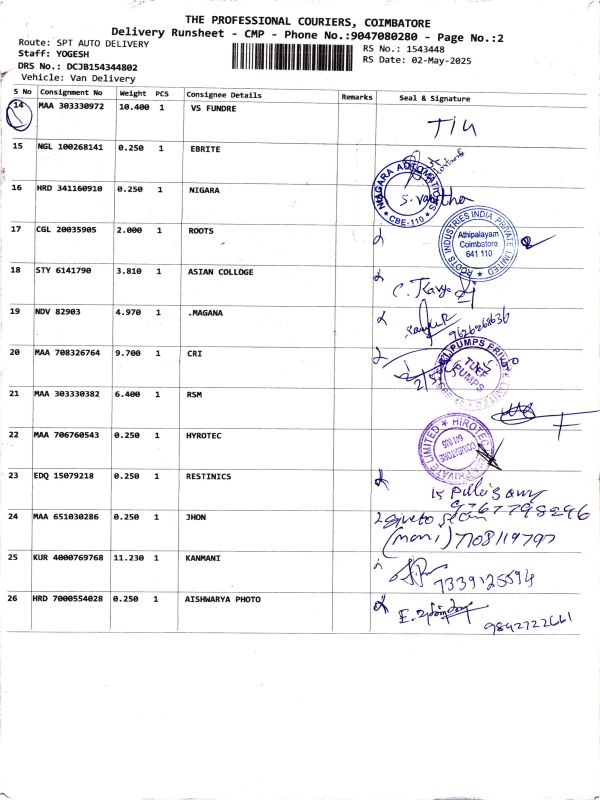 THE PROFESSIONAL COURIERS, COIMBATORE
Delivery Runsheet - CMP - Phone No.:9047080280 - Page No.:2
Route: SPT AUTO DELIVERY
Staff: YOGESH
DRS No.: DCJB154344802
Vehicle: Van Delivery
RS No.: 1543448
RS Date: 02-May-2025
S No Consignment No Weight PCS Consignee Details Remarks Seal & Signature
14 MAA 303330972 10.400 1 VS FUNDRE
15 NGL 100268141 0.250 1 EBRITE
16 HRD 341160910 0.250 1 NIGARA
NIAGARA AUTOMATIONS
CBE-110
17 CGL 20035905 2.000 1 ROOTS
ROOTS INDUSTRIES INDIA PRIVATE LIMITED
Athipalayam
Coimbatore
641 110
18 STY 6141790 3.810 1 ASIAN COLLOGE
19 NDV 82903 4.970 1 .MAGANA
20 MAA 708326764 9.700 1 CRI
PUMPS PRIVATE LIMITED
TUFF
PUMPS
21 MAA 303330382 6.400 1 RSM
22 MAA 706760543 0.250 1 HYROTEC
HIROTEC
PRIVATE LIMITED
COIMBATORE
23 EDQ 15079218 0.250 1 RESTINICS
24 MAA 651030286 0.250 1 JHON
(mani) 7708119797
25 KUR 4000769768 11.230 1 KANMANI
7339125594
26 HRD 7000554028 0.250 1 AISHWARYA PHOTO
9842722661